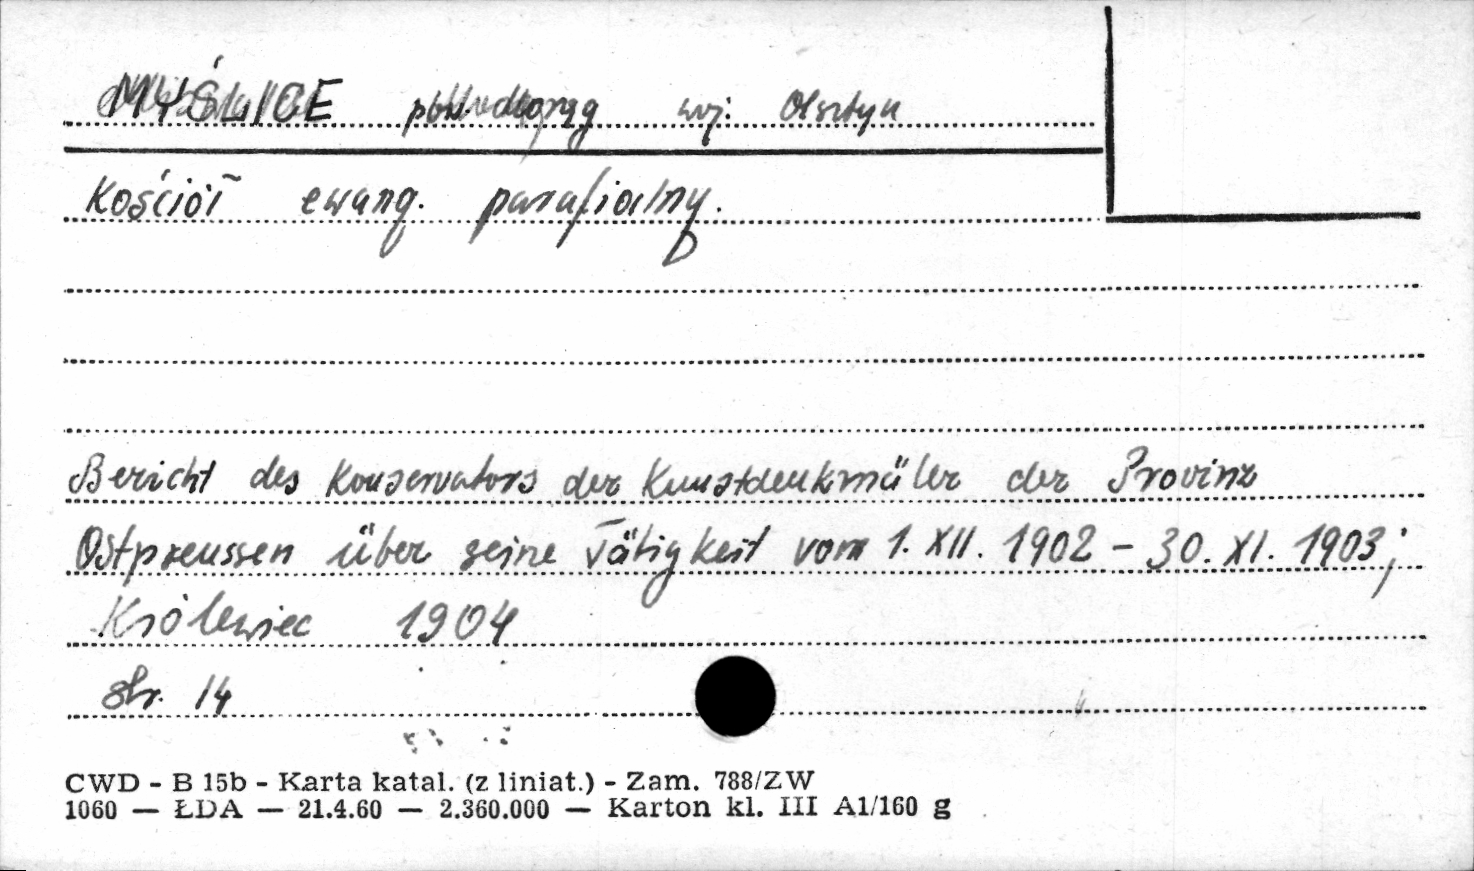 MYŚLICE pow. Morąg woj. Olsztyn
Kościół ewang. parafialny.
Bericht des Konservators der Kunstdenkmäler der Provinz
Ostpreussen über seine Tätigkeit vom 1. XII. 1902 - 30. XI. 1903;
Królewiec 1904
str. 14
CWD - B 15b - Karta katal. (z liniat.) - Zam. 788/ZW
1060 — ŁDA — 21.4.60 — 2.360.000 — Karton kl. III A1/160 g